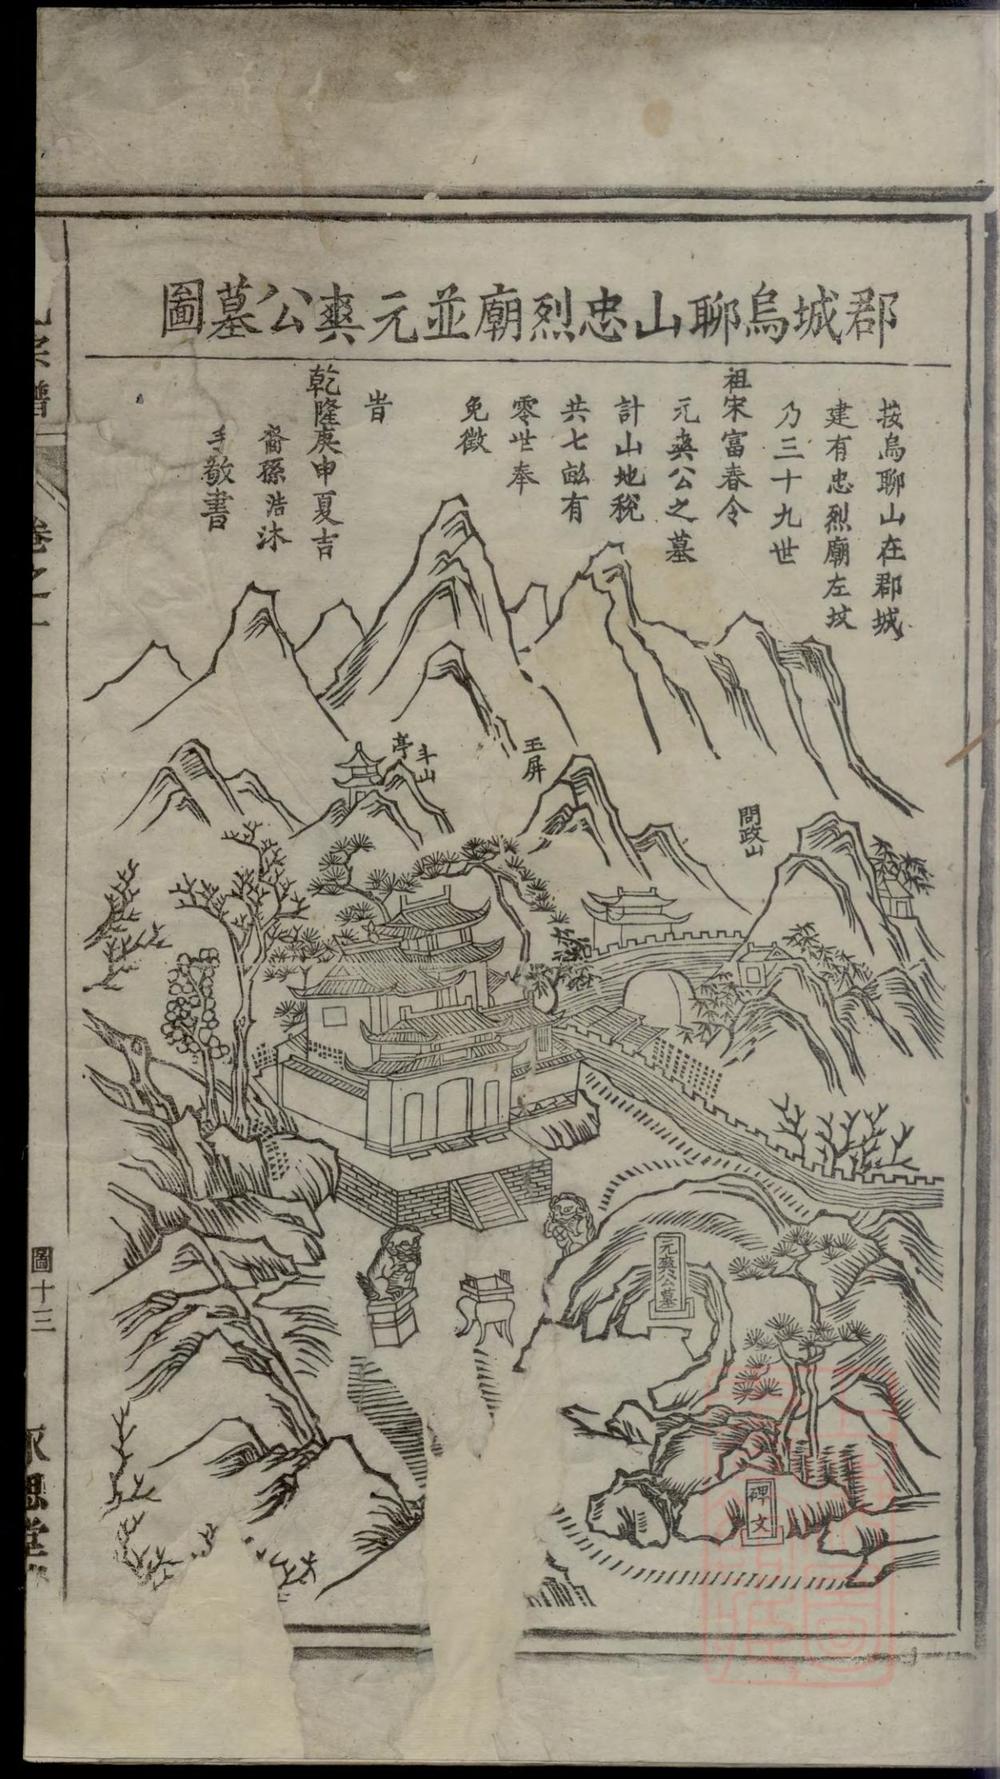 郡城烏聊山忠烈廟並元奭公墓圖
按烏聊山在郡城
建有忠烈廟左坟
乃三十九世
祖宋富春令
元奭公之墓
計山地稅
共七畝有
零世奉
免徵
旹
乾隆庚申夏吉
裔孫浩沐
手敬書
斗山
亭
玉屏
問政山
元奭公墓
碑文
宗譜
卷之一
圖十三
思堂